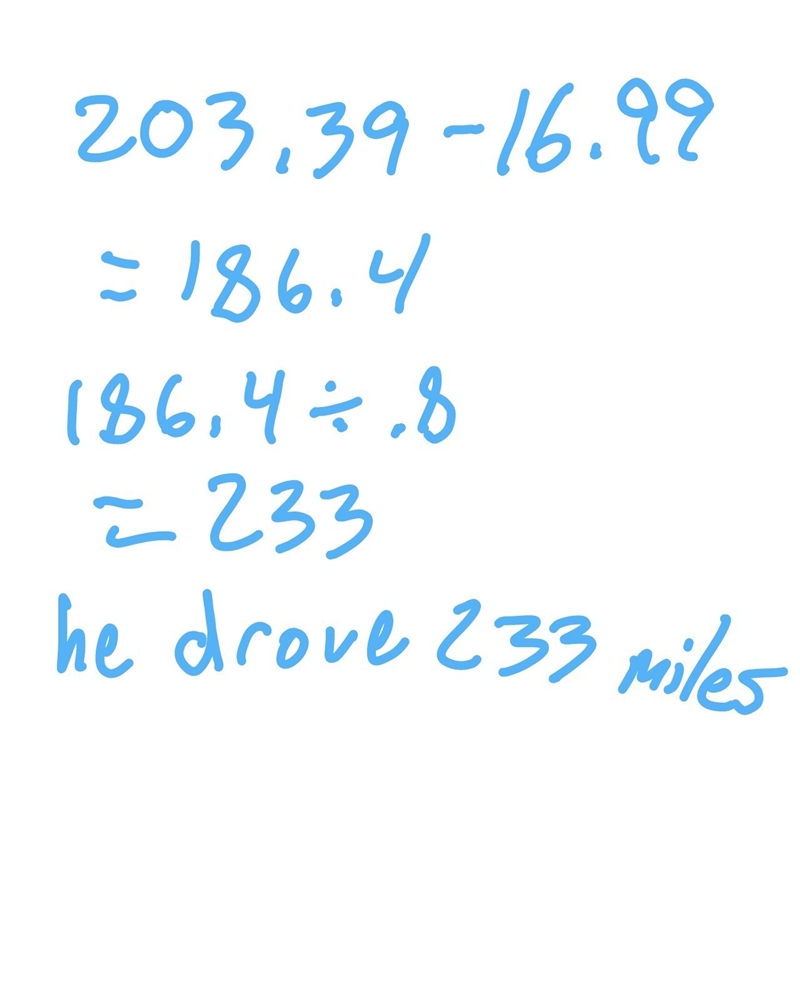 203.39 - 16.99
= 186.4
186.4 ÷ .8
= 233
he drove 233 miles